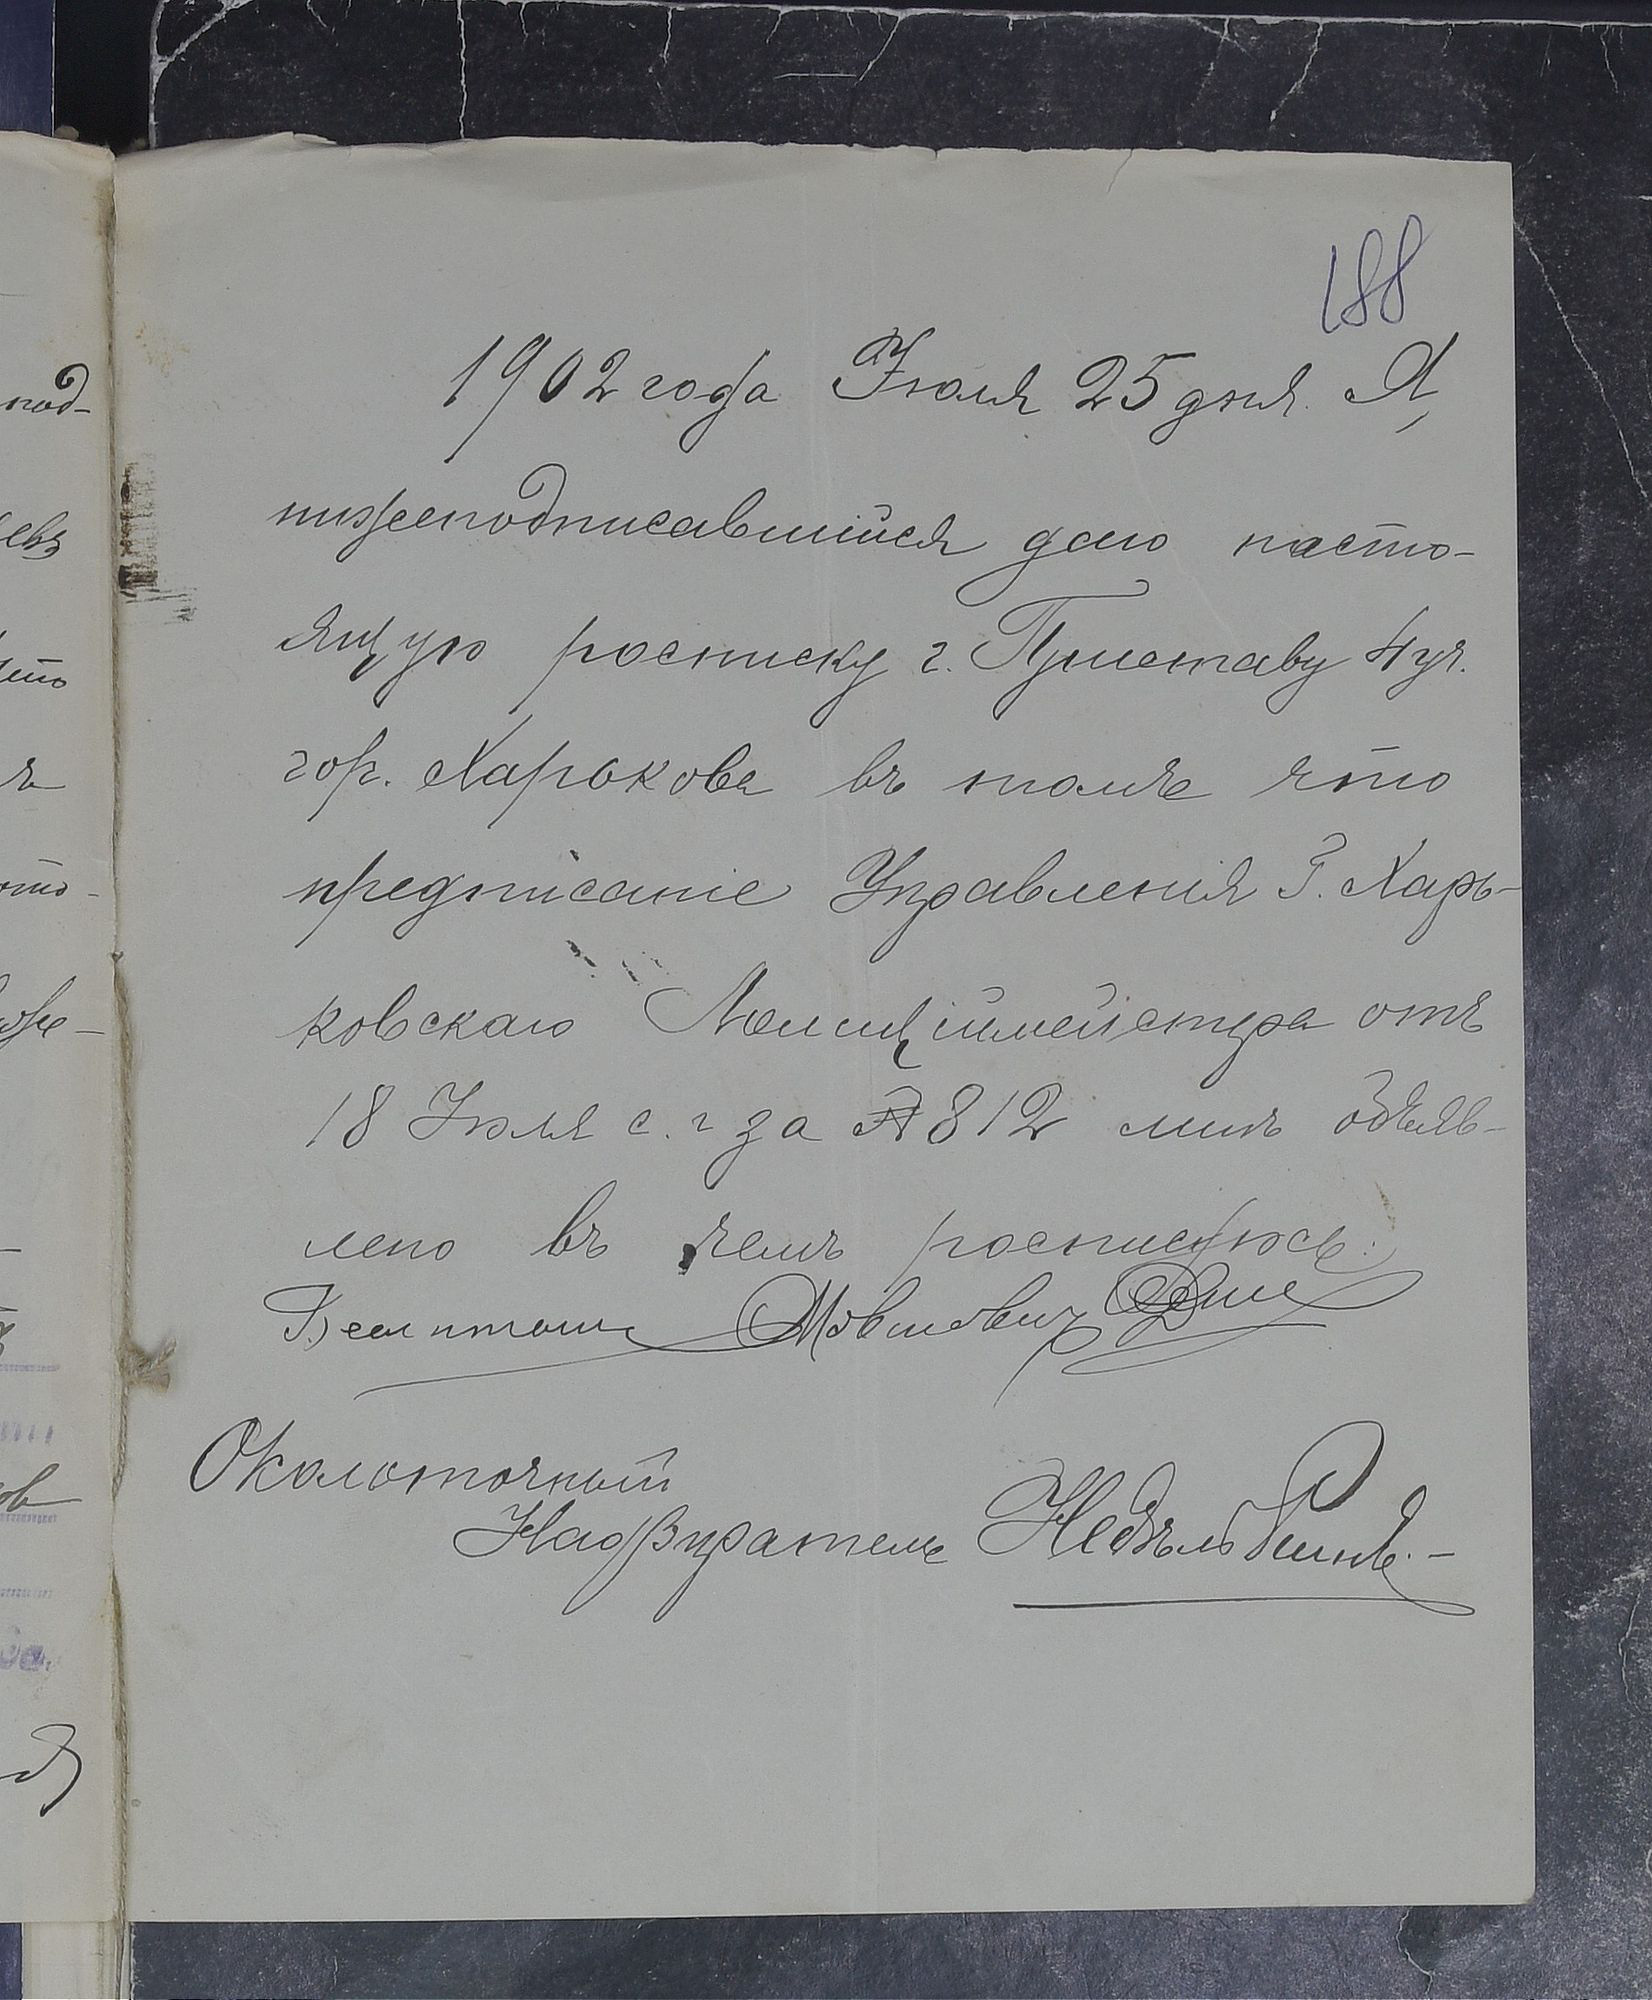 188
1902 года Іюля 25 дня. Я,
нижеподписавшийся даю насто-
ящую росписку г. Приставу 4 уч.
гор. Харькова въ томъ что
предписаніе Управленія Г. Харь-
ковскаго Полиціймейстера отъ
18 Іюля с. г за № 812 мнѣ объяв-
лено въ чемъ росписуюсь.
Мовшовичъ
Околоточный
Надзиратель